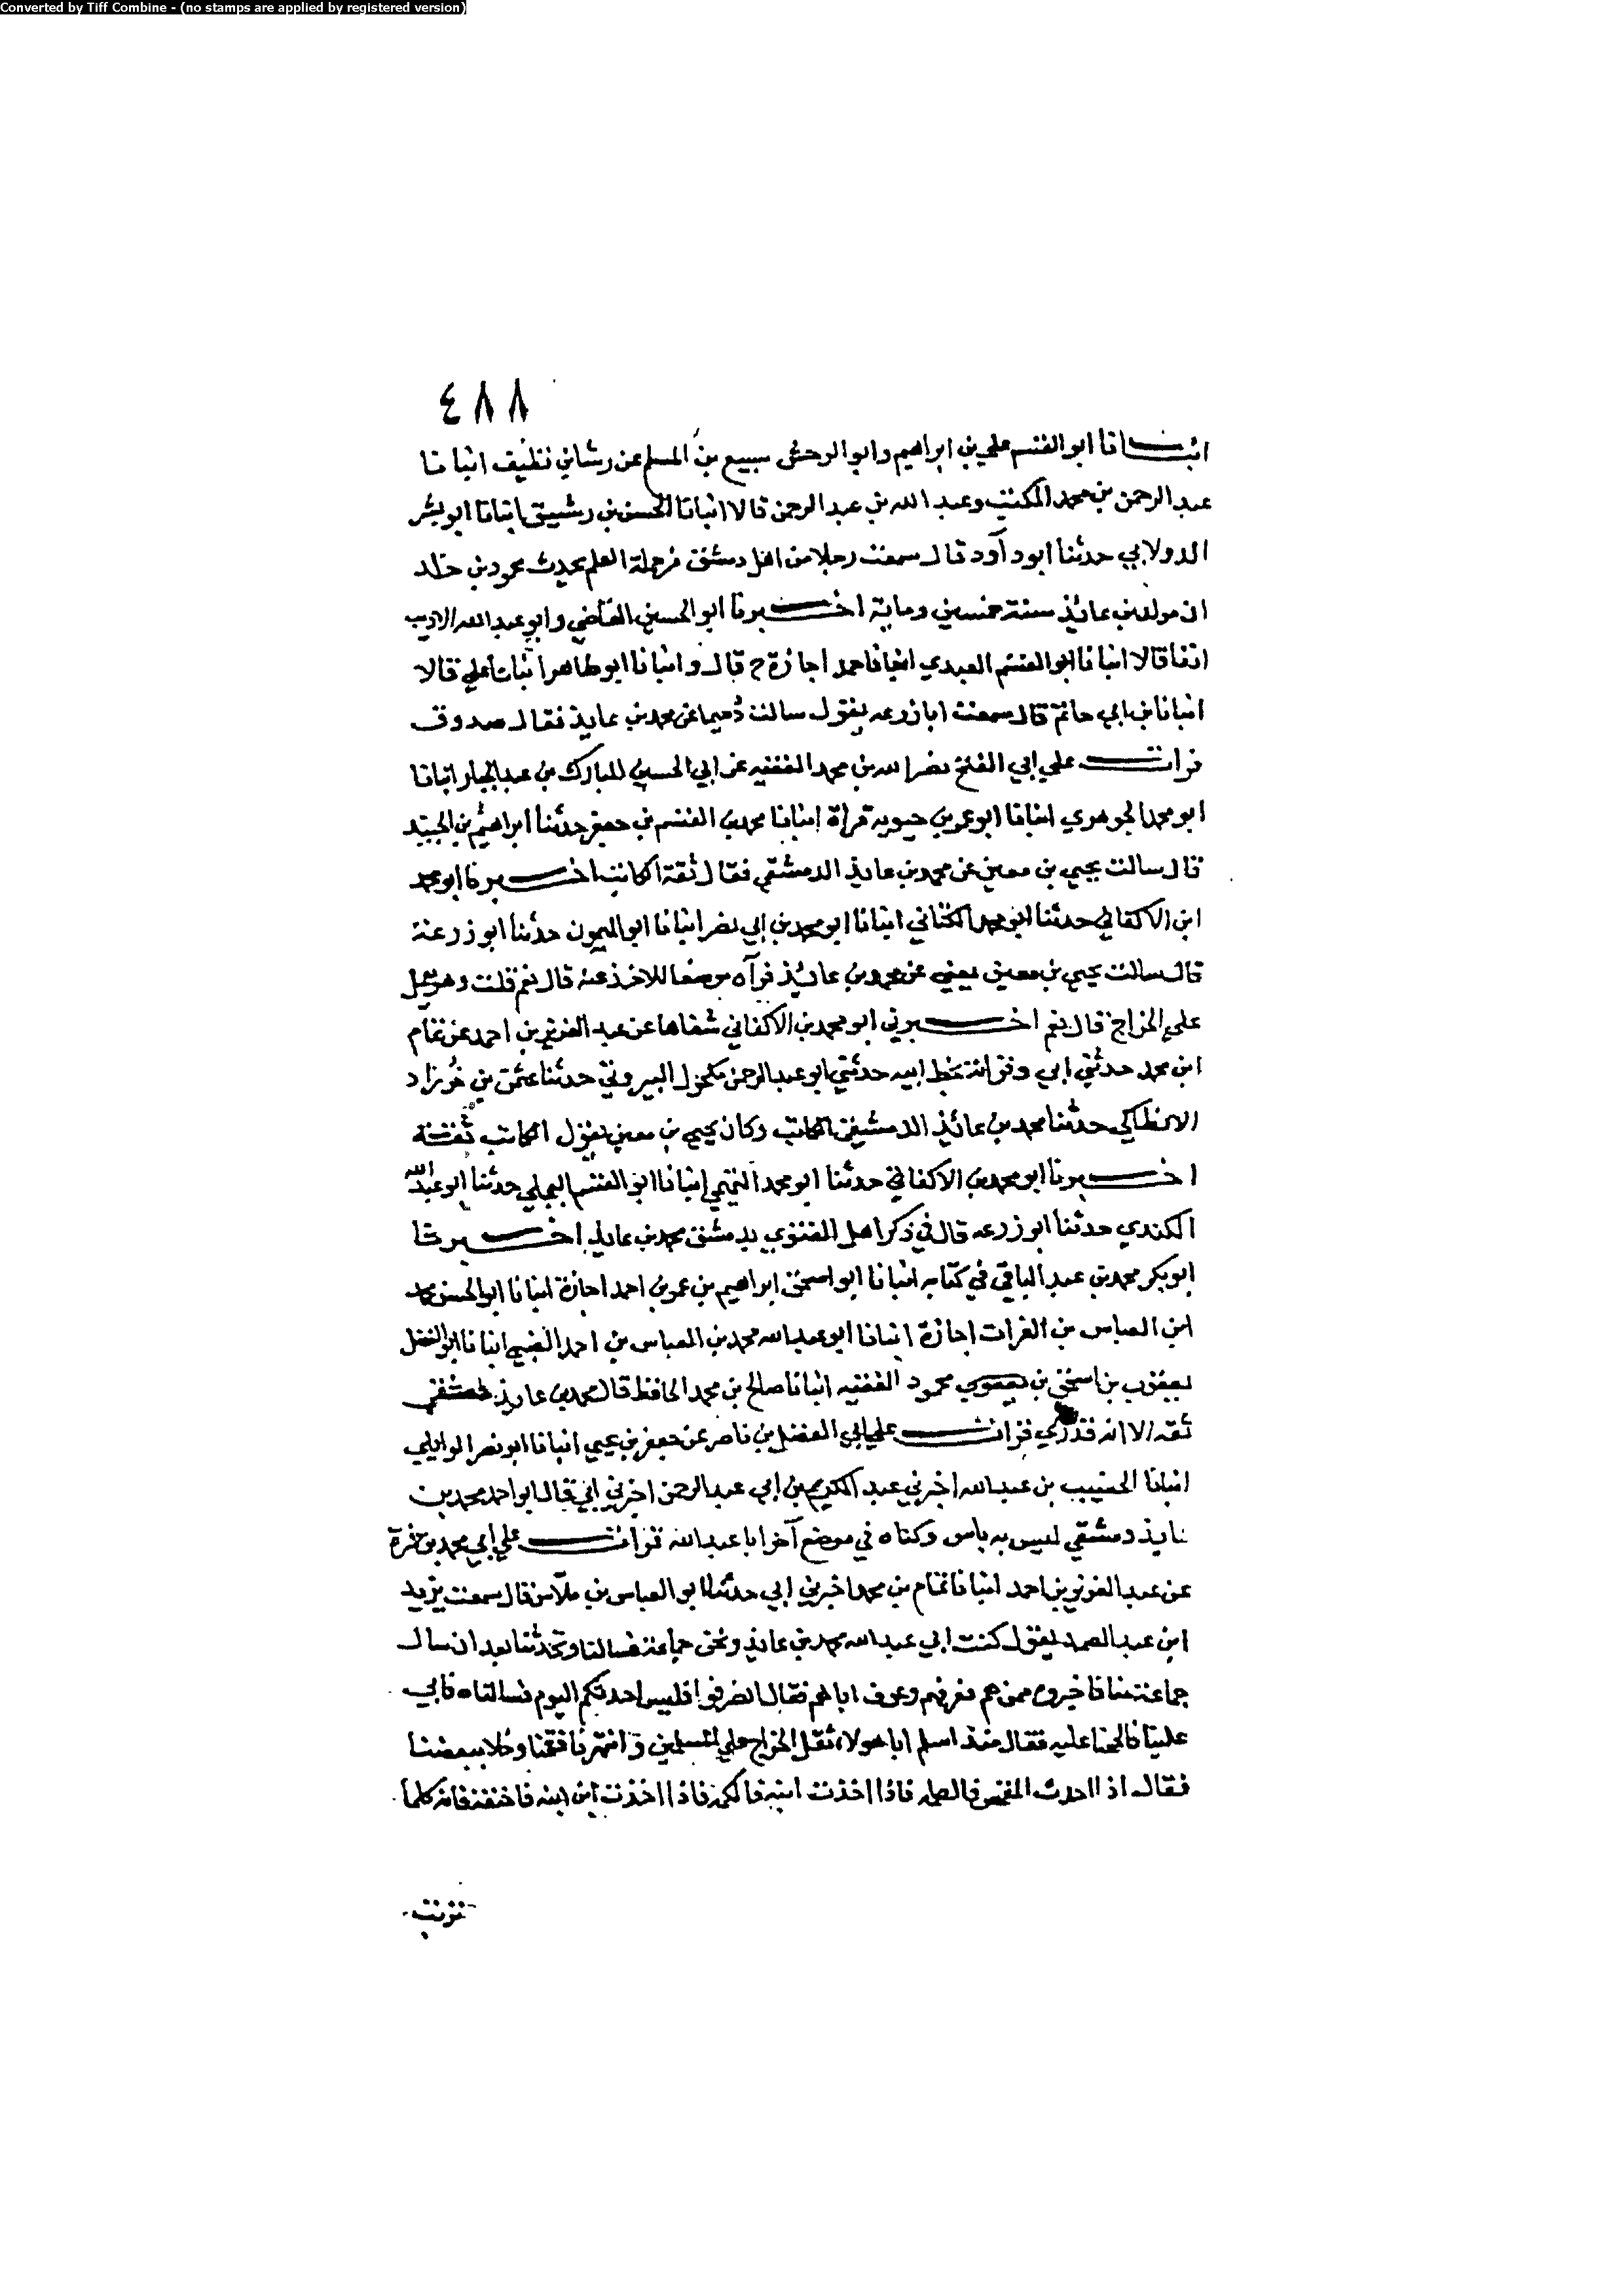 Converted by Tiff Combine - (no stamps are applied by registered version)
٤٨٨
انبـــانا ابو القسم علي بن ابراهيم وابو الوحش سبيع بن المسلم عن رشا بن نظيف انبانا
عبد الرحمن بن محمد المكتب وعبد الله بن عبد الرحمن قالا انبانا الحسن بن رشيق انبانا ابو بشر
الدولابي حدثنا ابو دآود قال سمعت رجلا من اهل دمشق من جملة العلم يحدث محمود بن خالد
ان مولد بن عائذ سنة خمسين وماية اخـــبرنا ابو الحسين القاضي وابو عبد الله الاديب
اذنا قالا انبانا ابو القسم العبدي انبانا حمد اجازة ح قال وانبانا ابو طاهر انبانا علي قالا
انبانا بن ابي حاتم قال سمعت ابا زرعه يقول سالت دُحيما عن محمد بن عايذ فقال صدوق
قرات علي ابي الفتح نصر الله بن محمد الفقيه عن ابي الحسين المبارك بن عبد الجبار انبانا
ابو محمد الجوهري انبانا ابو عمر بن حيويه قراة انبانا محمد بن القسم بن جعفر حدثنا ابراهيم بن الجنيد
قال سالت يحيى بن معين عن محمد بن عايذ الدمشقي فقال ثقة الكاتب اخـــبرنا ابو محمد
ابن الاكفاني حدثنا ابو محمد الكتاني انبانا ابو محمد بن ابي نصر انبانا ابو الميمون حدثنا ابو زرعة
قال سالت يحيى بن معين يعني عن محمد بن عائذ فرآه موضعا للاخذ عنه قال نعم قلت وهو يعمل
علي الخراج قال نعم اخـــبرني ابو محمد بن الاكفاني شفاها عن عبد العزيز بن احمد عن تمام
ابن محمد حدثني ابي وقرانته بخط ابيه حدثني ابو عبد الرحمن مكحول البيروتي حدثنا عثمن بن خُرزاد
الانطاكي حدثنا محمد بن عائذ الدمشقي الكاتب وكان يحيى بن معين يقول الكاتب ثقة
اخـــبرنا ابو محمد بن الاكفاني حدثنا ابو محمد التميمي انبانا ابو القسم البجلي حدثنا ابو عبد الله
الكندي حدثنا ابو زرعه قال في ذكر اهل الفتوي بدمشق محمد بن عايذ اخـــبرنا
ابو بكر محمد بن عبد الباقي في كتابه انبانا ابو اسحق ابراهيم بن عمر بن احمد اجازة انبانا ابو الحسن محمد
ابن العباس بن الفرات اجازة انبانا ابو عبد الله محمد بن العباس بن احمد الضبي انبانا ابو الفضل
يعقوب بن اسحق بن محمود الفقيه انبانا صالح بن محمد الحافظ قال محمد بن عايذ دمشقي
ثقه الا انه قدري قرات علي ابي الفضل بن ناصر عن جعفر بن يحيى انبانا ابو نصر الوايلي
انبانا الخصيب بن عبد الله اخبرني عبد الكريم بن ابي عبد الرحمن اخبرني ابي قال ابو احمد محمد بن
عايذ دمشقي ليس به باس وكناه في موضع آخر ابا عبد الله قرات علي ابي محمد بن حمزة
عن عبد العزيز بن احمد انبانا تمام بن محمد اخبرني ابي حدثنا ابو العباس بن ملآس قال سمعت يزيد
ابن عبد الصمد يقول كنت ابي عبد الله محمد بن عائذ ونحن جماعة فسالنا وتحدثنا بعد ان سال
جماعة منا فاخبروه ممن هم فعرفهم وعرف اباهم فقال انصرفوا فليس احدثكم اليوم فسالناه فابي
علينا فالححنا عليه فقال منذ اسلم ابا هولاء ثقل الخراج علي المسلمين وانتهرنا فقمنا وخلا ببعضنا
فقال اذا احدث فالطمه فاذا اخذت ابنه فالكمه فاذا اخذت ابن ابنه فاخنقه فانه كلما